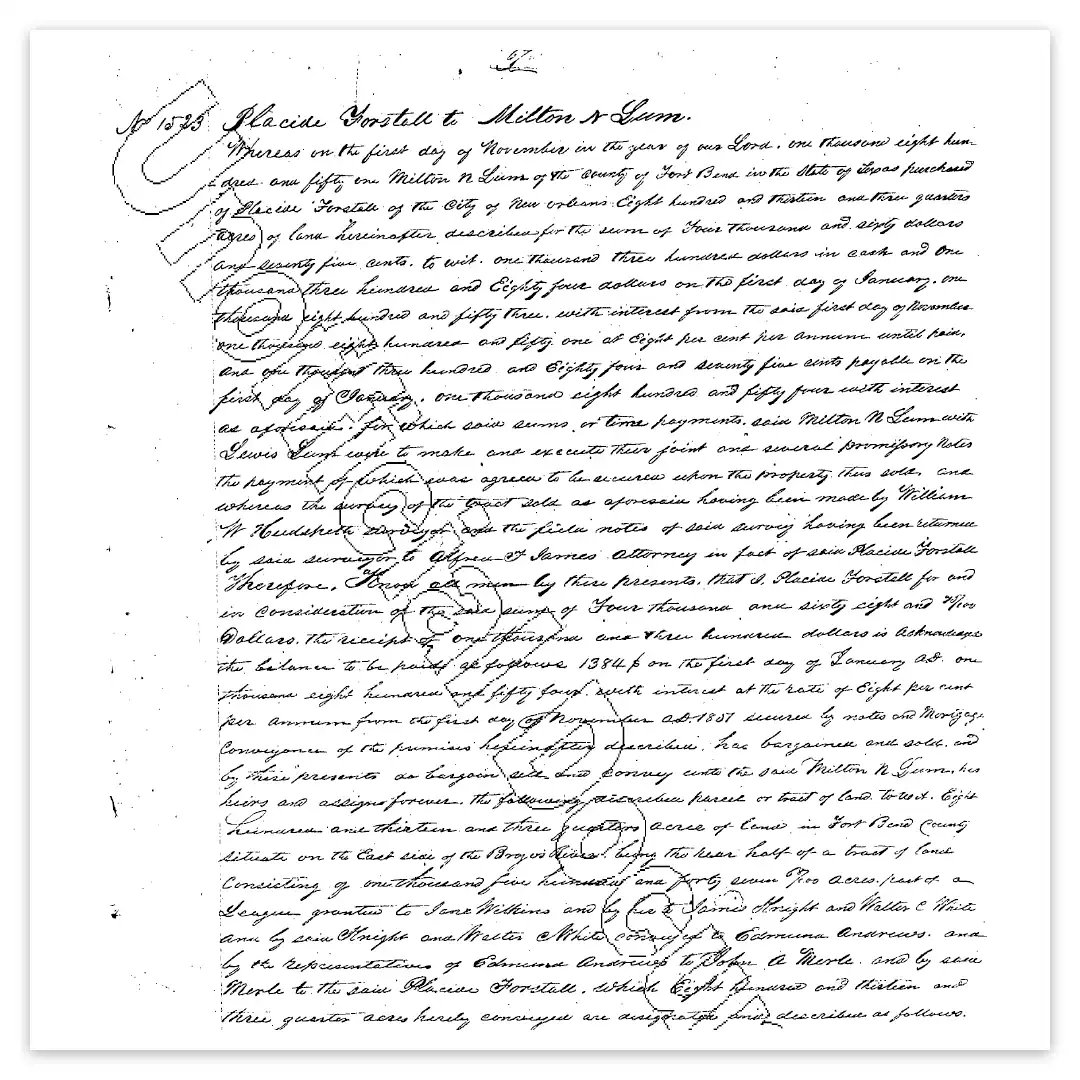 No 1523 Placide Forstall to Milton N Lum.
Whereas on the first day of November in the year of our Lord, one thousand eight hun-
dred and fifty one Milton N Lum of the County of Fort Bend in the State of Texas purchased
of Placide Forstall of the City of New Orleans Eight hundred and thirteen and three quarters
acres of land hereinafter described for the sum of Four thousand and sixty dollars
and seventy five cents. to wit. one thousand three hundred dollars in cash and One
thousand three hundred and Eighty four dollars on the first day of January, one
thousand eight hundred and fifty three, with interest from the said first day of November
one thousand eight hundred and fifty one at Eight per cent per annum until paid,
and one thousand three hundred and Eighty four and seventy five cents payable on the
first day of January, one thousand eight hundred and fifty four with interest
as aforesaid. for which said sums or time payments, said Milton N Lum with
Lewis Lum were to make and execute their joint and several promissory notes
the payment of which was agreed to be secured upon the property thus sold. and
whereas the survey of the tract sold as aforesaid having been made by William
W Hudspeth surveyor and the field notes of said survey having been returned
by said surveyor to Alfred F James Attorney in fact of said Placide Forstall
Therefore, Know all men by these presents, that I, Placide Forstall for and
in Consideration of the said sum of Four thousand and sixty eight and 75/100
Dollars, the receipt of one thousand and three hundred dollars is acknowledged
the balance to be paid as follows 1384 $ on the first day of January AD. one
thousand eight hundred and fifty four, with interest at the rate of Eight per cent
per annum from the first day of November AD. 1851 secured by notes and Mortgage
Conveyance of the premises hereinafter described. has bargained and sold. and
by these presents do bargain sell and convey unto the said Milton N Lum, his
heirs and assigns forever. the following described parcel or tract of land to wit. Eight
hundred and thirteen and three quarters acres of land in Fort Bend County
situate on the East side of the Brazos River, being the rear half of a tract of land
Consisting of one thousand five hundred and forty seven /100 acres, part of a
League granted to Jane Wilkins and by her to James Knight and Walter C White
and by said Knight and Walter C White conveyed to Edmund Andrews. and
by the representatives of Edmund Andrews to John A Merle. and by said
Merle to the said Placide Forstall. which Eight hundred and thirteen and
three quarter acres hereby conveyed are designated and described as follows.
Unofficial Document